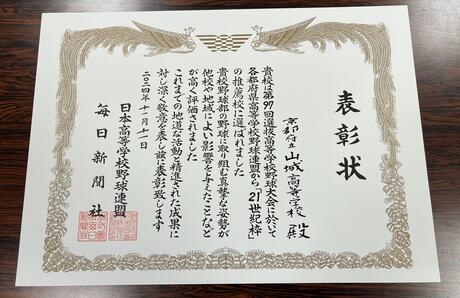 表彰状
京都府立山城高等学校殿
貴校は第97回選抜高等学校野球大会において
各都府県高等学校野球連盟から「21世紀枠」
の推薦校に選ばれました
貴校野球部の野球に取り組む真摯な姿勢が
他校や地域によい影響を与えたことなど
が高く評価されました
これまでの地道な活動と精進された成果に
対し深く敬意を表し茲に表彰致します
二〇二四年十一月十一日
日本高等学校野球連盟
毎日新聞社